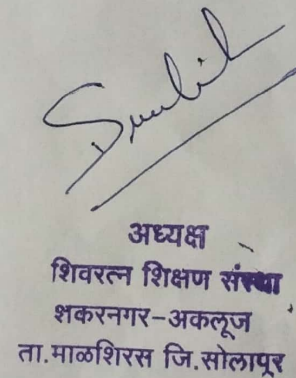 अध्यक्ष
शिवरत्न शिक्षण संस्था
शकरनगर-अकलूज
ता.माळशिरस जि.सोलापूर